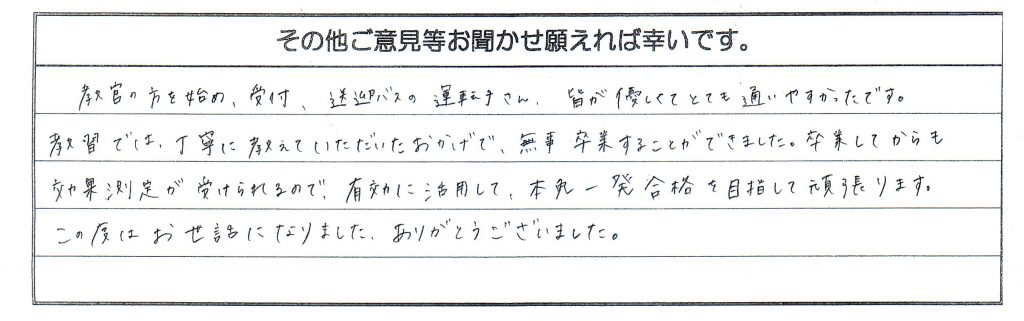 その他ご意見等お聞かせ願えれば幸いです。
教官の方を始め、受付、送迎バスの運転手さん、皆が優しくてとても通いやすかったです。
教習では、丁寧に教えていただいたおかげで、無事卒業することができました。卒業してからも
効果測定が受けられるので、有効に活用して、本免一発合格を目指して頑張ります。
この度はお世話になりました。ありがとうございました。